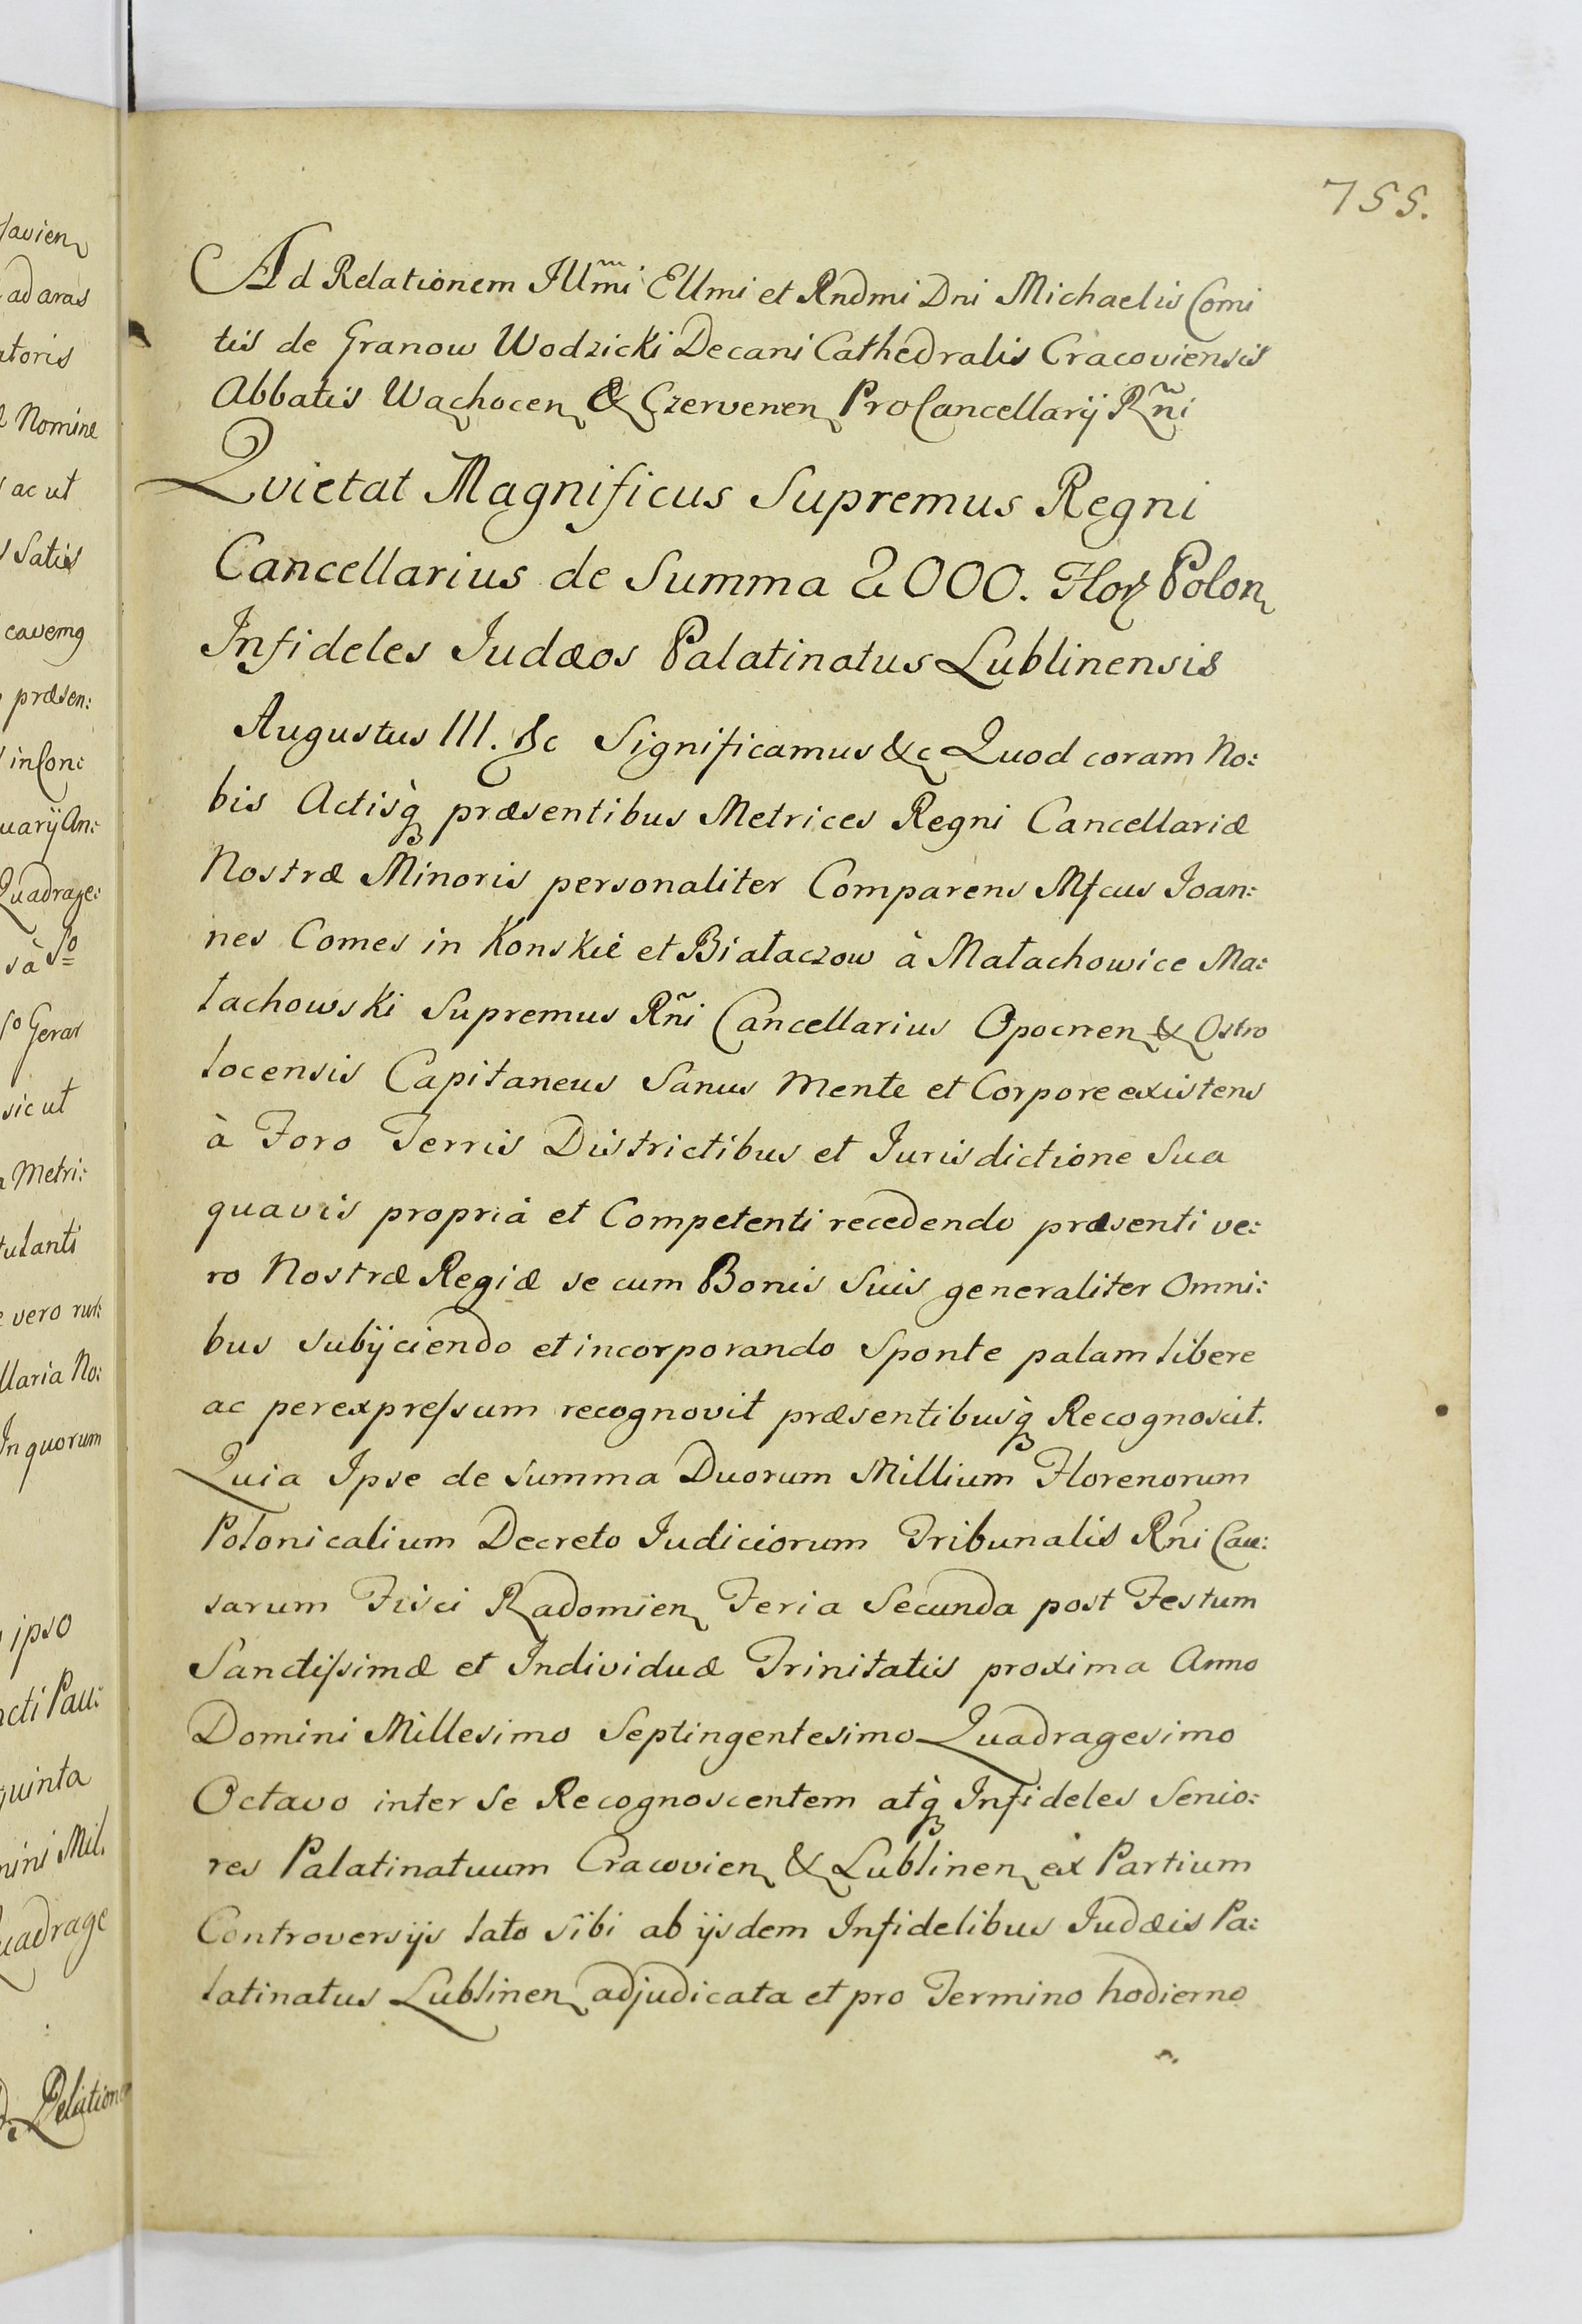 755.
Ad Relationem Illm̃i Ellmi et Rndmi Dni Michaelis Comi
tis de Granow Wodzicki Decani Cathedralis Cracoviensis
Abbatis Wachocen & Czervenen ProCancellarij Rñi
Quietat Magnificus Supremus Regni
Cancellarius de Summa 2000. Flor Polon
Infideles Judæos Palatinatus Lublinensis
Augustus III. &c Significamus &c Quod coram No:
bis Actisq̀ præsentibus Metrices Regni Cancellariæ
Nostræ Minoris personaliter Comparens Mfcus Joan:
nes Comes in Konskie et Białaczow à Małachowice Ma:
łachowski Supremus Rñi Cancellarius Opocnen & Ostro
łocensis Capitaneus Sanus Mente et Corpore existens
à Foro Terris Districtibus et Jurisdictione Sua
quavis propriâ et Competenti recedendo præsenti ve:
ro Nostræ Regiæ se cum Bonis Suis generaliter Omni:
bus subijciendo et incorporando Sponte palam libere
ac perexpressum recognovit præsentibusq̀ Recognoscit.
Quia Ipse de Summa Duorum Millium Florenorum
Polonicalium Decreto Judiciorum Tribunalis Rñi Cau:
sarum Fisci Radomien Feria Secunda post Festum
Sanctissimæ et Individuæ Trinitatis proxima Anno
Domini Millesimo Septingentesimo Quadragesimo
Octavo inter Se Recognoscentem atq̀ Infideles Senio:
res Palatinatuum Cracovien & Lublinen ex Partium
Controversijs lato sibi ab ijsdem Infidelibus Judæis Pa:
latinatus Lublinen adjudicata et pro Termino hodierno